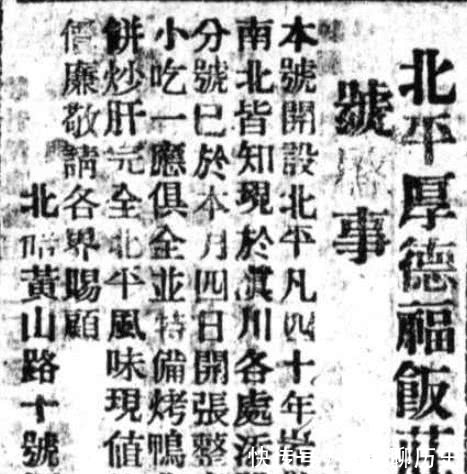 北平厚德福飯
號 事
本號開設北平凡四十年
南北皆知現於滇川各處添
分號已於本月四日開張整
小吃一應俱全並特備烤鴨
餅炒肝完全北平風味現值
價廉敬請各界賜顧
北 黃山路十號
快 号